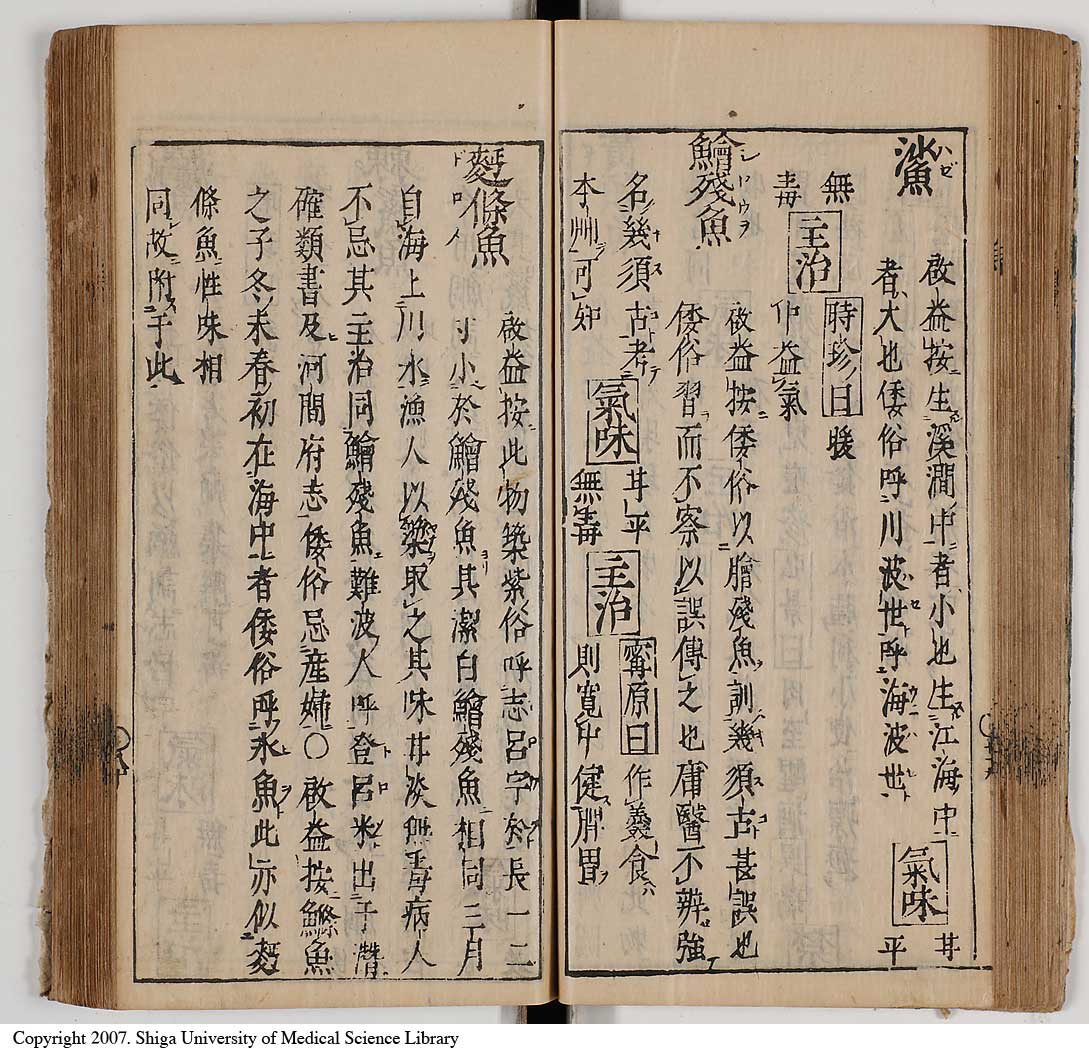 鯊 啟益按生溪澗中者小也生江海中
者大也倭俗呼川波世呼海波世
氣味 甘
平
無
毒
主治 時珍曰 暖
中益氣
鱠殘魚 啟益按倭俗以膾殘魚訓幾須古甚誤也
倭俗習而不察以誤傳之也庸醫不辨強
名幾須古考
本州可知
氣味 甘平
無毒
主治 甯原曰 作羹食
則寬中健脾胃
麪條魚 啟益按此物築紫俗呼志呂宇於長一二
寸小於鱠殘魚其潔白鱠殘魚相同三月
自海上川水漁人以簗取之其味甘淡無毒病人
不忌其主治同鱠殘魚難波人呼登呂米出于潛
確類書及河間府志倭俗忌産婦〇啟益按鰷魚
之子冬末春初在海中者倭俗呼氷魚此亦似麪
條魚性味相
同故附于此
Copyright 2007. Shiga University of Medical Science Library